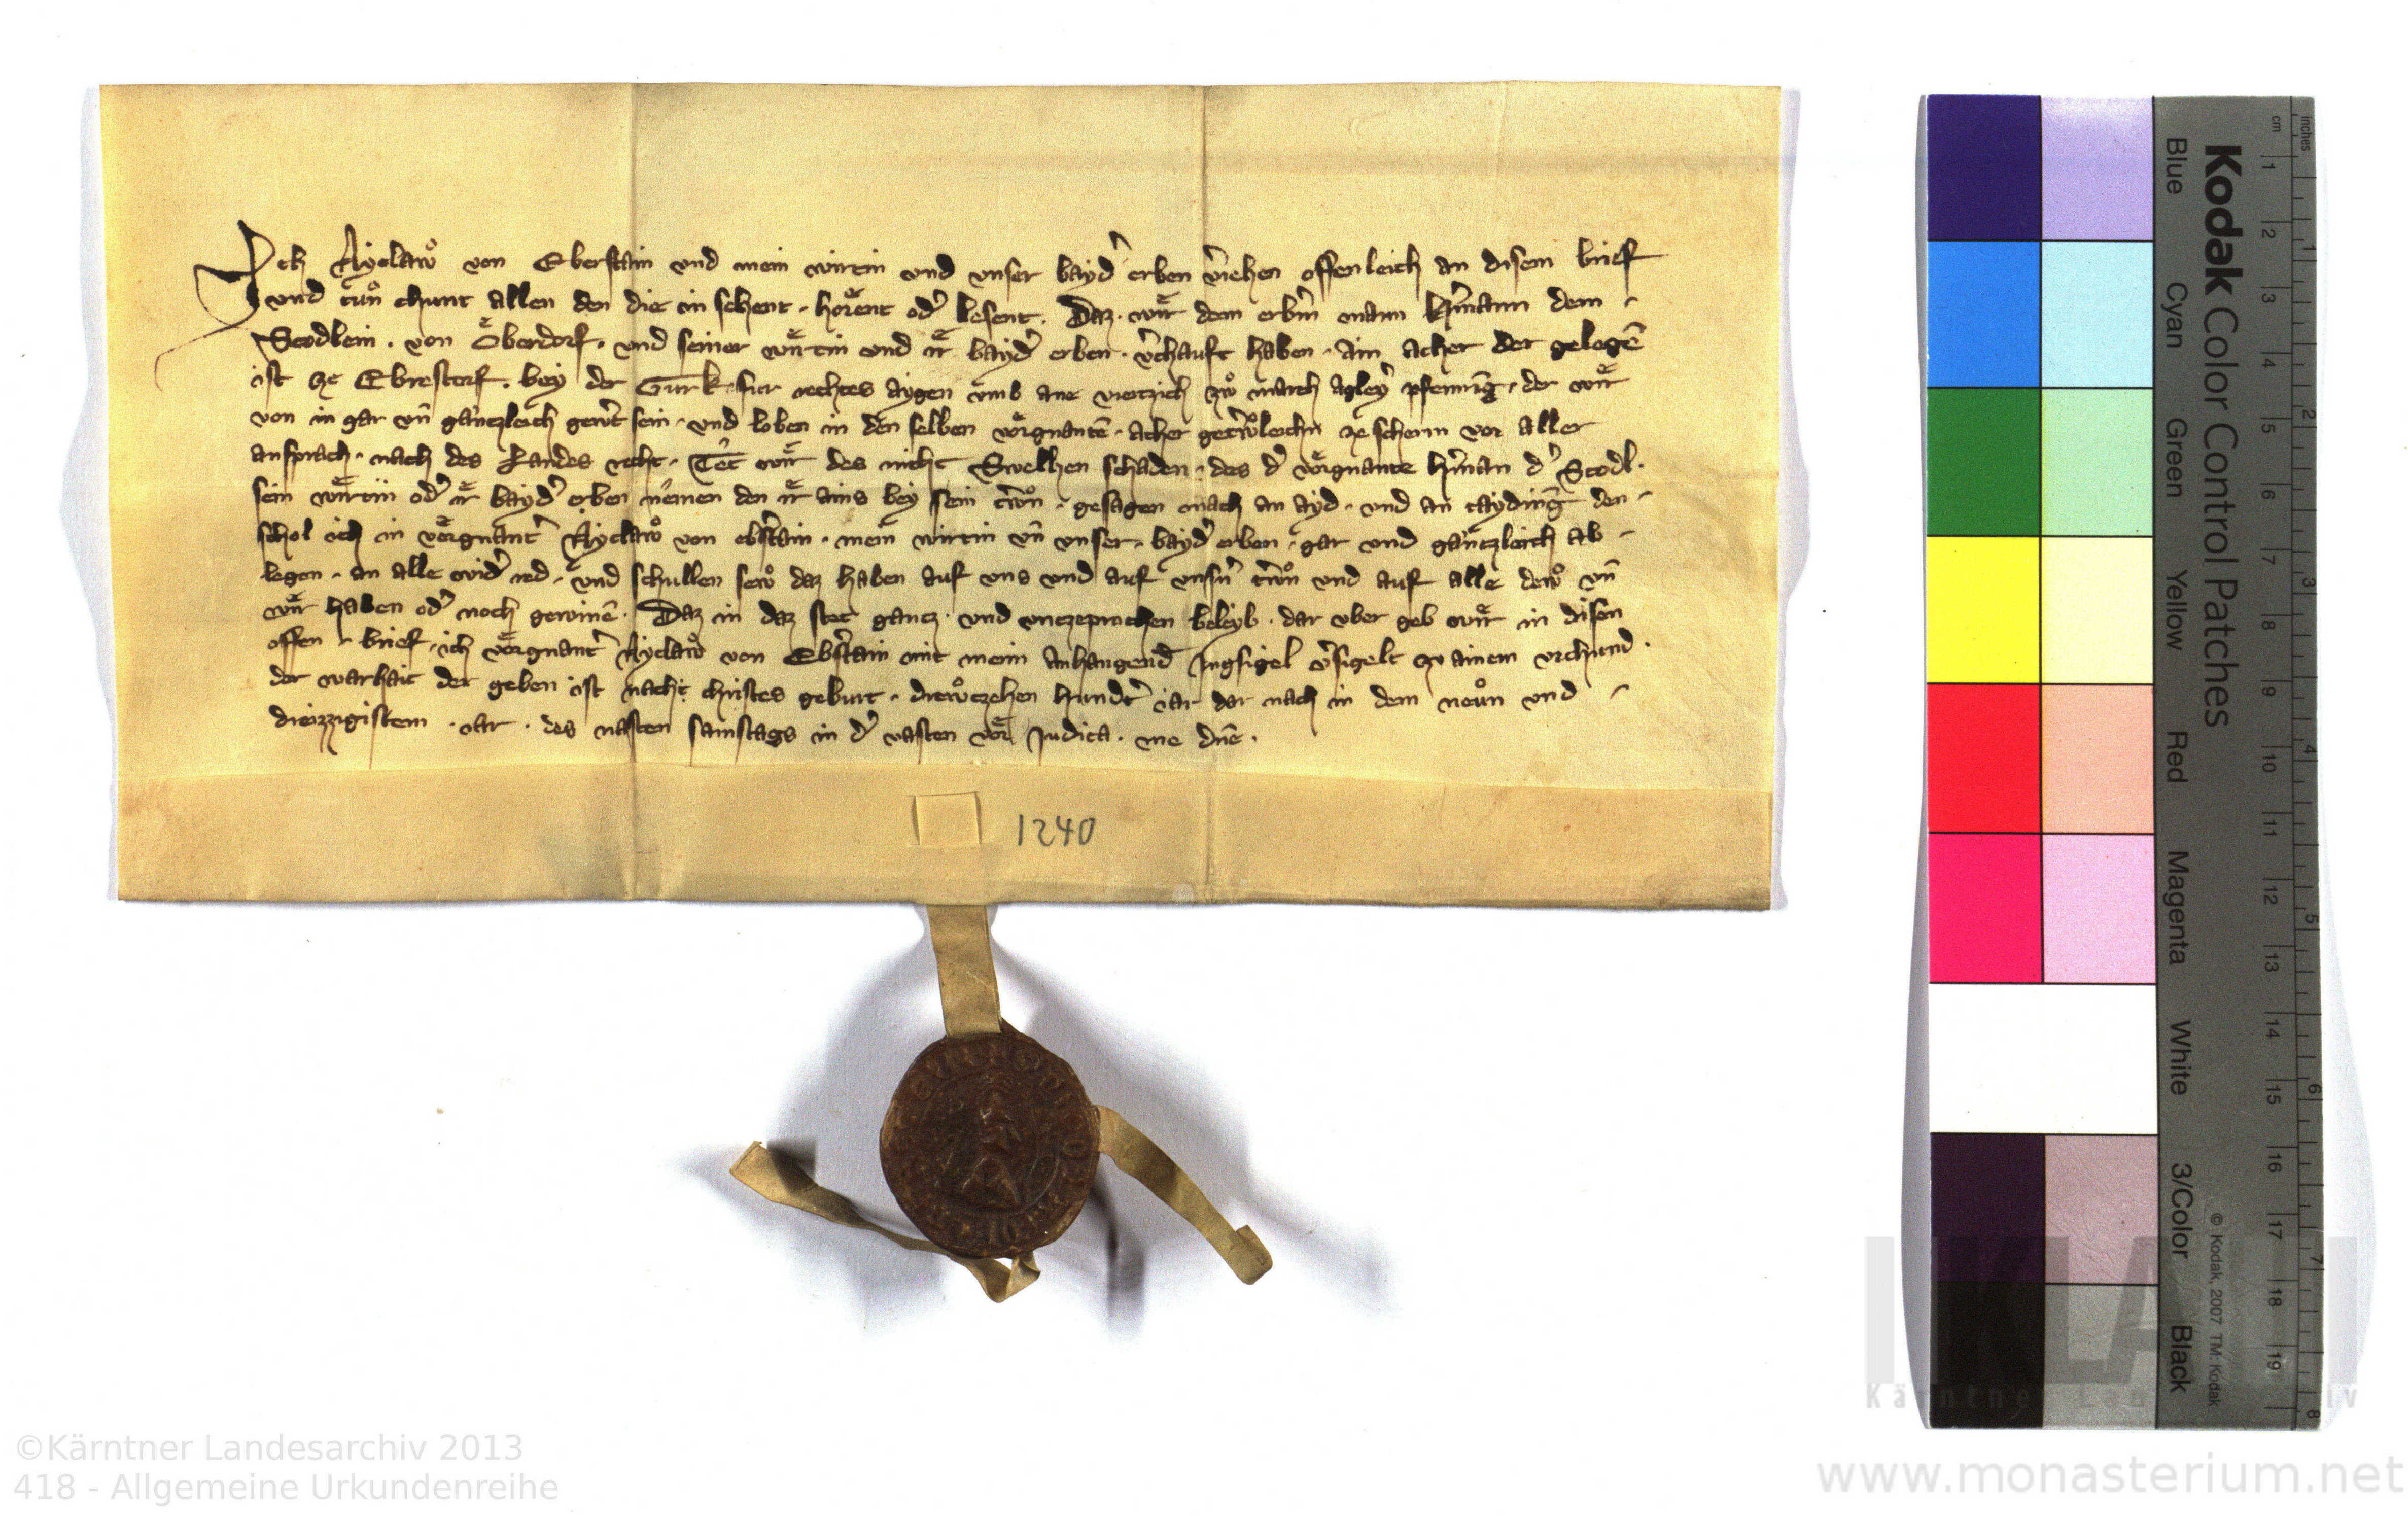 Ich Nyclaẘ von Eberstain vnd mein wirtin vnd vnser bayd' erben v'iehen offenleich an disem brief
vnd tůn chunt allen den die in sehent · hoͤrent od' lesent · Daz · wir dem erb'm mann H'mann dem
Stodlein · von Oͤberdorf · vnd seiner wirtin vnd ir bayd' erben · v'chauft haben · ain acher der gelegē
ist ze Ebrestorf · bey der Gurk · fur rechtes aygen vmb ane viertzich zẘ march agley' pfenning · der wir
von in gar vn̄ gantzleich gew't sein · vnd loben in den selben vorgnantē · acher getrẘleichn ze scherm vor aller
ansprach · nach des Landes recht · Tet wir des nicht Swelhen schaden · des d' vorgnante H'man d' Stodl ·
sein wirtin od' ir bayd' erben nemen den ir ains bey sein trẘn · gesagen mach an ayd · vnd an tayding den
schol ich in vorgnant' Nyclaẘ von ebstain · mein wirtin vn̄ vnser · bayd' erben · gar vnd gantzleich ab
legen · an alle wid' red · vnd schullen seẘ daz haben auf vns vnd auf vns'n trẘn vnd auf alle deẘ vn̄
wir haben od' noch gewinē · Daz in daz stet gantz · vnd vntzeprochen beleyb · dar vber geb wir in disen
offen · brief · ich vorgnant' Nyclaẘ von Ebstain mit meim anhangend Jngsigel v'sigelt zu ainem vrchund ·
der warhait der geben ist nach christes geburt · dreẘtzehen hundt' iar dar nach in dem neůn vnd
dreizzigistem · iar · des nasten samstags in d' vasten vor Judica · me dn̄e ·
1240
Kodak Color Control Patches
Blue Cyan Green Yellow Red Magenta White 3/Color Black
© Kodak, 2007 TM: Kodak
inches 1 2 3 4 5 6 7 8
cm 1 2 3 4 5 6 7 8 9 10 11 12 13 14 15 16 17 18 19
©Kärntner Landesarchiv 2013
418 - Allgemeine Urkundenreihe
www.monasterium.net